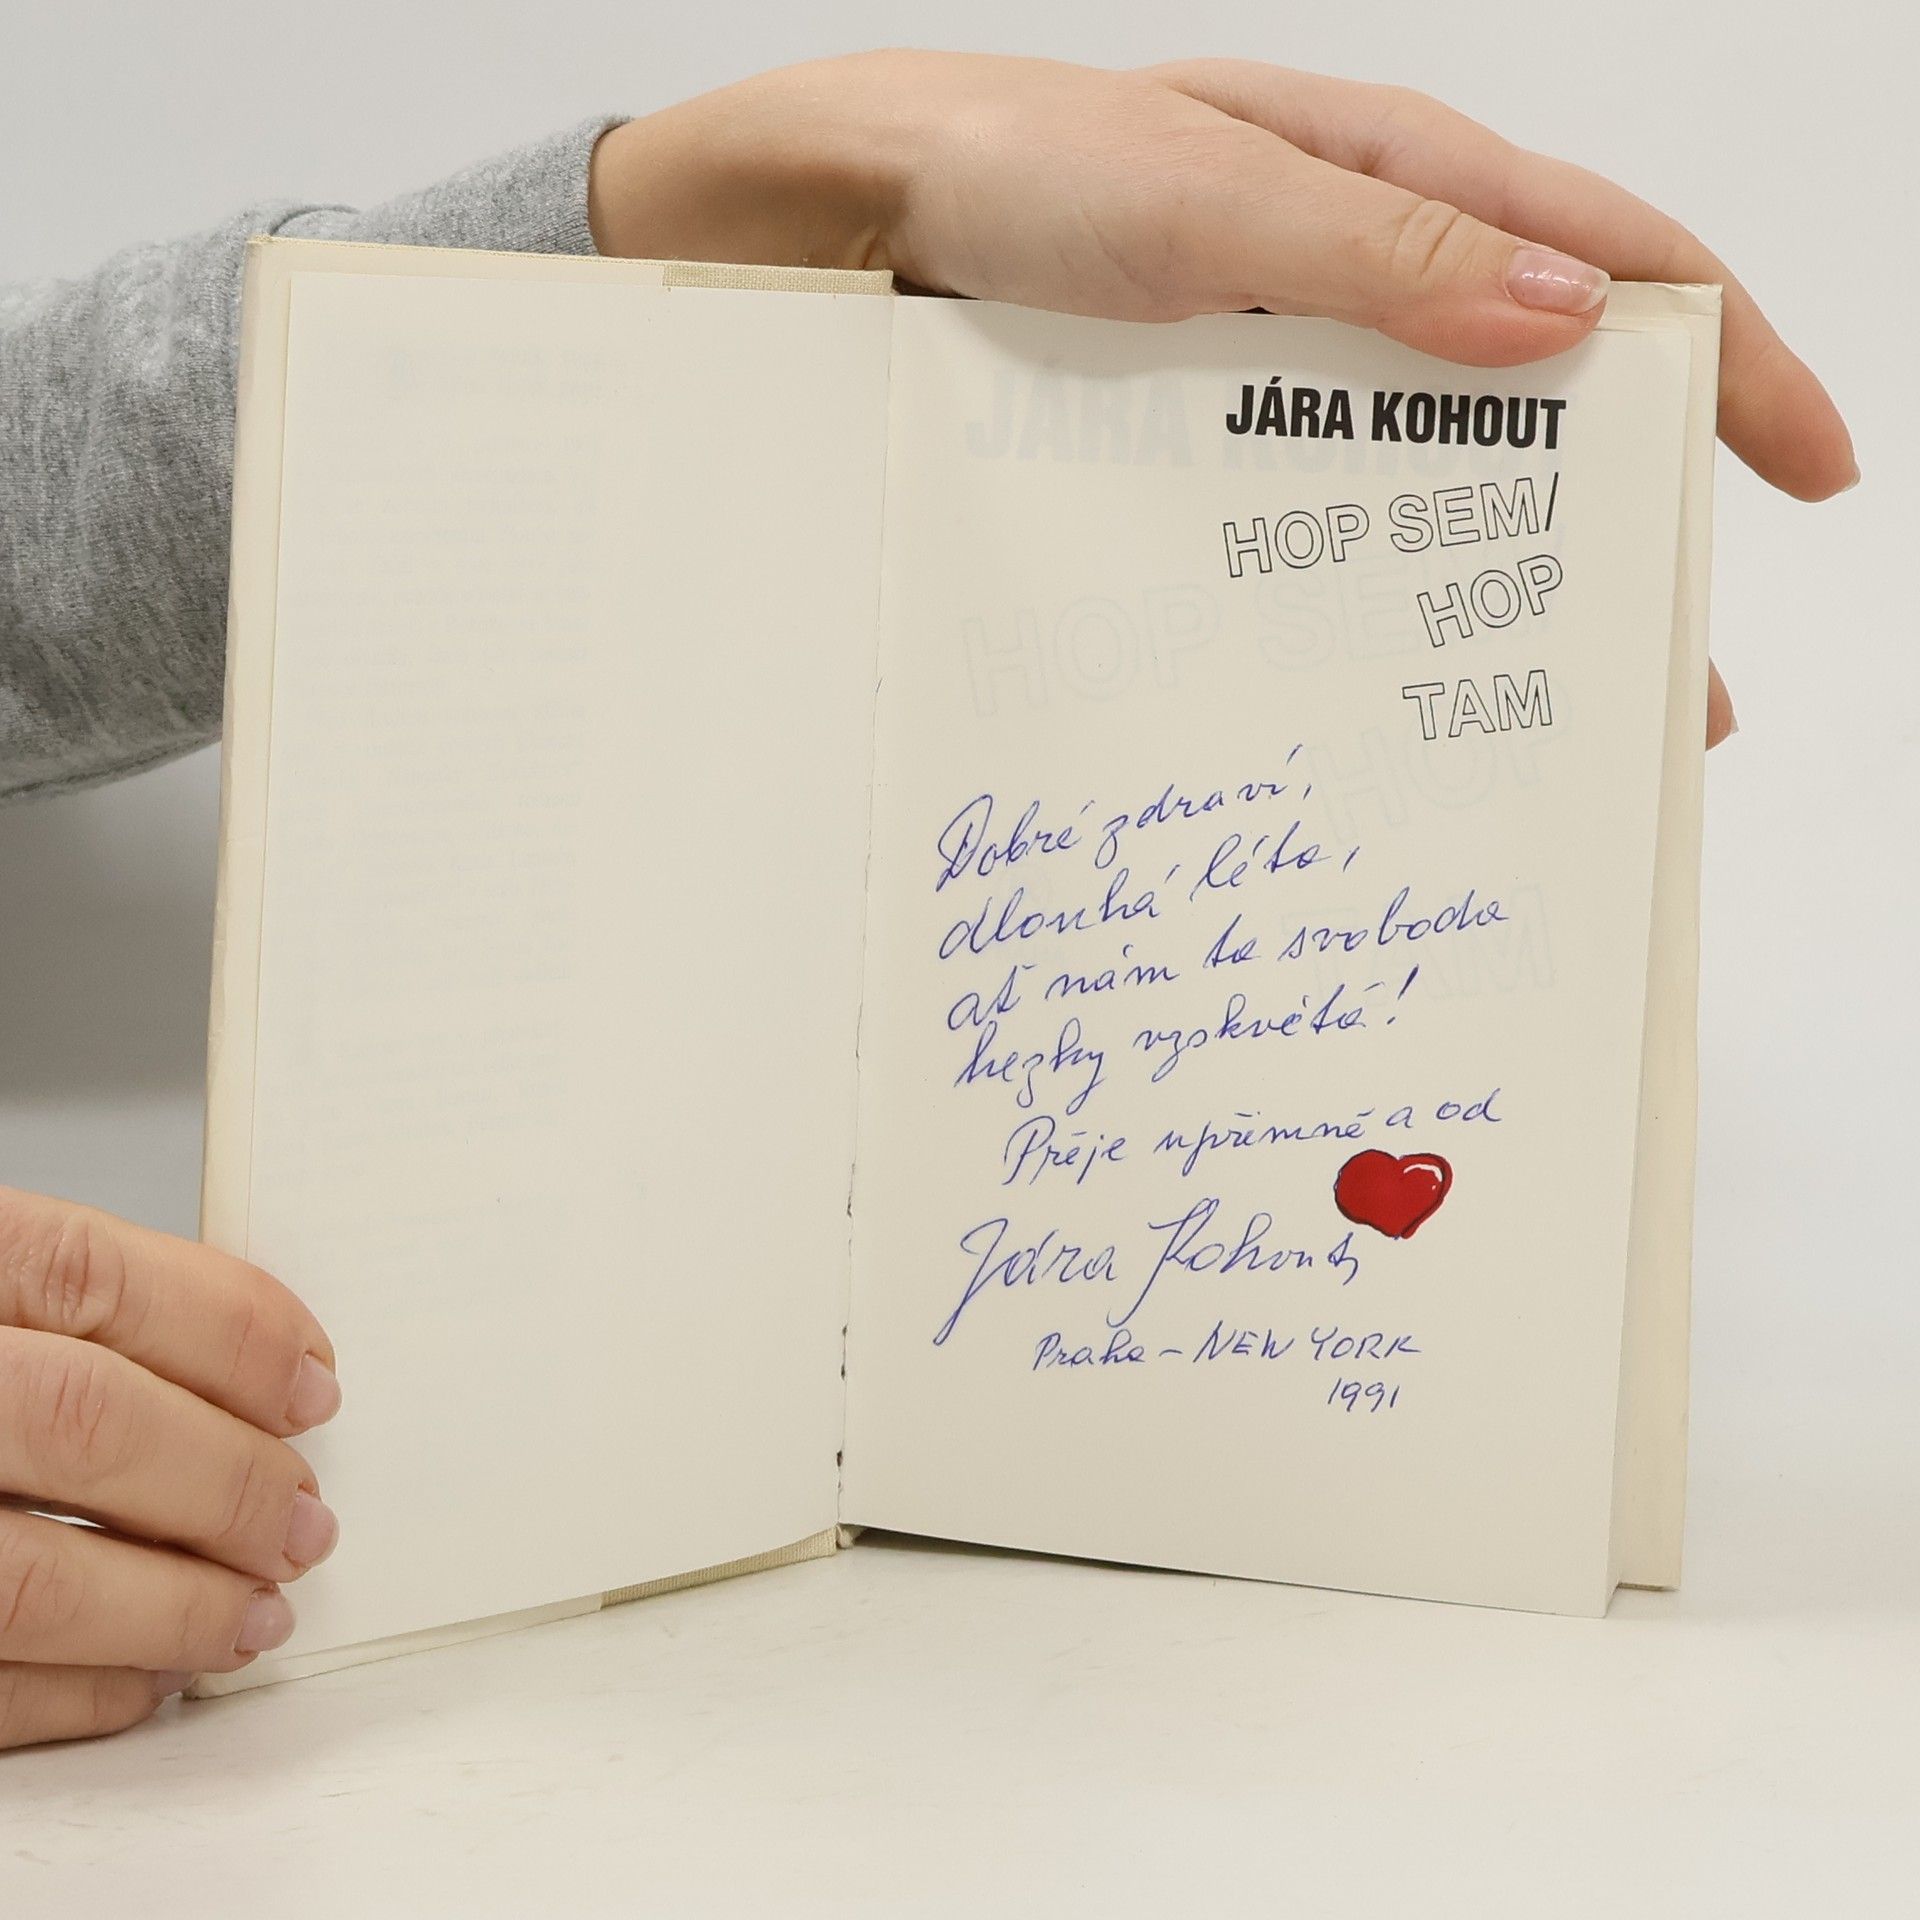 JÁRA KOHOUT
HOP SEM/
HOP
TAM
Dobré zdraví,
dlouhá léta,
ať nám ta svoboda
hezky vzskvétá!
Přeje upřímně a od
Jára Kohout
Praha – NEW YORK
1991